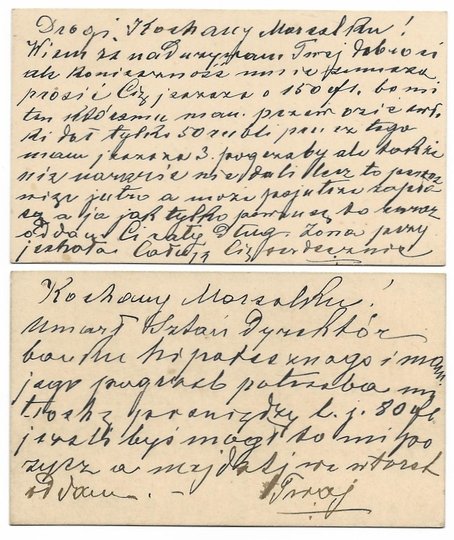 Drogi, Kochany Marszałku!
Wiem że nadużywam Twej dobroci
ale konieczność mnie zmusza
prosić Cię jeszcze o 150 fl. bo mi
ten któremu mam
dał tylko 50 rubli prócz tego
mam jeszcze 3 pogrzeby ale także
nie zaraz nie dali lecz to
jutro a może pojutrze
a ja jak tylko to zaraz
oddam Ci cały dług. Żona przy
jechała Całuję Cię serdecznie
Kochany Marszałku!
Umarł Dyrektor
banku hipotecznego i mam
jego pogrzeb potrzeba mi
trochę pieniędzy t. j. 80 fl.
jeżeli byś mógł to mi po
życz a najdalej we wtorek
oddam. - Twój